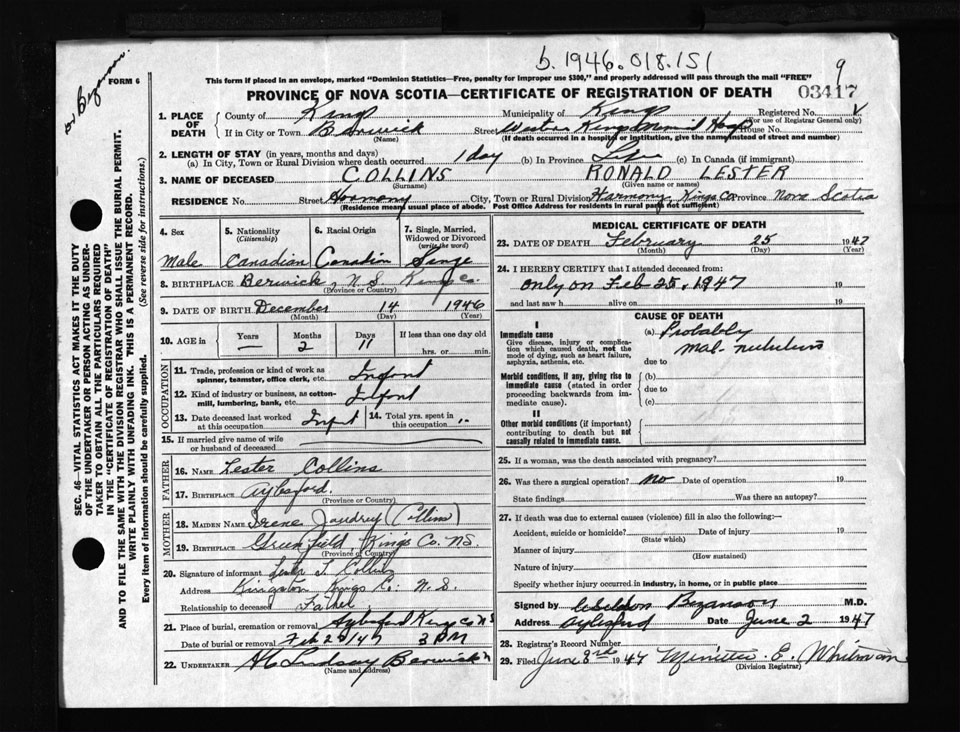 b. 1946.018151
9
FORM 6
Bezanson
This form if placed in an envelope, marked "Dominion Statistics—Free, penalty for improper use $300," and properly addressed will pass through the mail "FREE"
PROVINCE OF NOVA SCOTIA—CERTIFICATE OF REGISTRATION OF DEATH
03417
SEC. 46—VITAL STATISTICS ACT MAKES IT THE DUTY
OF THE UNDERTAKER OR PERSON ACTING AS UNDER-
TAKER TO OBTAIN ALL THE PARTICULARS REQUIRED
IN THE "CERTIFICATE OF REGISTRATION OF DEATH"
AND TO FILE THE SAME WITH THE DIVISION REGISTRAR WHO SHALL ISSUE THE BURIAL PERMIT.
WRITE PLAINLY WITH UNFADING INK. THIS IS A PERMANENT RECORD.
Every item of information should be carefully supplied. (See reverse side for instructions.)
1. PLACE OF DEATH
County of Kings Municipality of Kings Registered No.
(For use of Registrar General only)
If in City or Town Berwick Street Western Kings Mem'l Hosp House No.
(Name) (If death occurred in a hospital or institution, give the name instead of street and number)
2. LENGTH OF STAY (in years, months and days)
(a) In City, Town or Rural Division where death occurred 1 day (b) In Province Life (c) In Canada (if immigrant)
3. NAME OF DECEASED COLLINS RONALD LESTER
(Surname) (Given name or names)
RESIDENCE No. Street Harmony City, Town or Rural Division Harmony, Kings Co Province Nova Scotia
(Residence means usual place of abode. Post Office Address for residents in rural parts not sufficient)
4. Sex Male
5. Nationality (Citizenship) Canadian
6. Racial Origin Canadian
7. Single, Married, Widowed or Divorced (write the word) Single
8. BIRTHPLACE Berwick, N.S. Kings Co.
(Province or Country)
9. DATE OF BIRTH December 14 1946
(Month) (Day) (Year)
10. AGE in Years — Months 2 Days 11 If less than one day old hrs. or min.
OCCUPATION
11. Trade, profession or kind of work as spinner, teamster, office clerk, etc. Infant
12. Kind of industry or business, as cotton-mill, lumbering, bank, etc. Infant
13. Date deceased last worked at this occupation Infant 14. Total yrs. spent in this occupation
15. If married give name of wife or husband of deceased
FATHER
16. NAME Lester Collins
17. BIRTHPLACE Aylesford.
(Province or Country)
MOTHER
18. MAIDEN NAME Irene Jaudrey (Collins)
19. BIRTHPLACE Greenfield Kings Co. N.S.
(Province or Country)
20. Signature of informant Lester L Collins
Address Kingston Kings Co. N.S.
Relationship to deceased Father
21. Place of burial, cremation or removal Aylesford Kings Co N S
Date of burial or removal Feb 2 /47 3 PM
22. UNDERTAKER Lindsay Berwick
(Name and address)
MEDICAL CERTIFICATE OF DEATH
23. DATE OF DEATH February 25 1947
(Month) (Day) (Year)
24. I HEREBY CERTIFY that I attended deceased from:
only on Feb 25, 1947 19
and last saw h alive on 19
CAUSE OF DEATH
I
Immediate cause
Give disease, injury or complication which caused death, not the mode of dying, such as heart failure, asphyxia, asthenia, etc.
(a) Probably
mal-nutrition
due to
Morbid conditions, if any, giving rise to immediate cause (stated in order proceeding backwards from immediate cause).
(b)
due to
(c)
II
Other morbid conditions (if important) contributing to death but not causally related to immediate cause.
25. If a woman, was the death associated with pregnancy?
26. Was there a surgical operation? no Date of operation 19
State findings Was there an autopsy?
27. If death was due to external causes (violence) fill in also the following:—
Accident, suicide or homicide? Date of injury 19
(State which)
Manner of injury
(How sustained)
Nature of injury
Specify whether injury occurred in industry, in home, or in public place
Signed by Weldon Bezanson M.D.
Address Aylesford Date June 2 1947
28. Registrar's Record Number
29. Filed June 3rd 1947 E. Whitman
(Division Registrar)